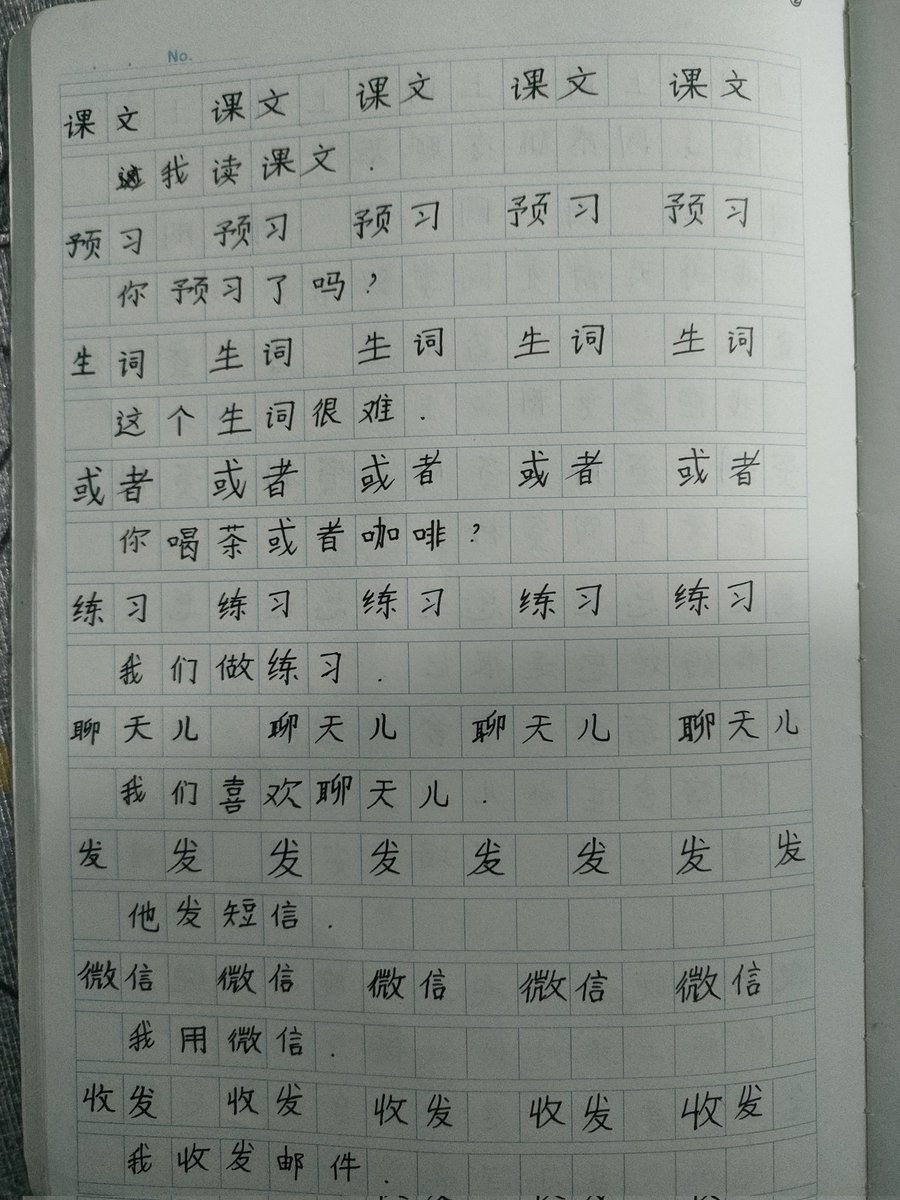 No.
课文 课文 课文 课文 课文
我读课文.
预习 预习 预习 预习 预习
你预习了吗?
生词 生词 生词 生词 生词
这个生词很难.
或者 或者 或者 或者 或者
你喝茶或者咖啡?
练习 练习 练习 练习 练习
我们做练习.
聊天儿 聊天儿 聊天儿 聊天儿
我们喜欢聊天儿.
发 发 发 发 发 发 发 发
他发短信.
微信 微信 微信 微信 微信
我用微信.
收发 收发 收发 收发 收发
我收发邮件.